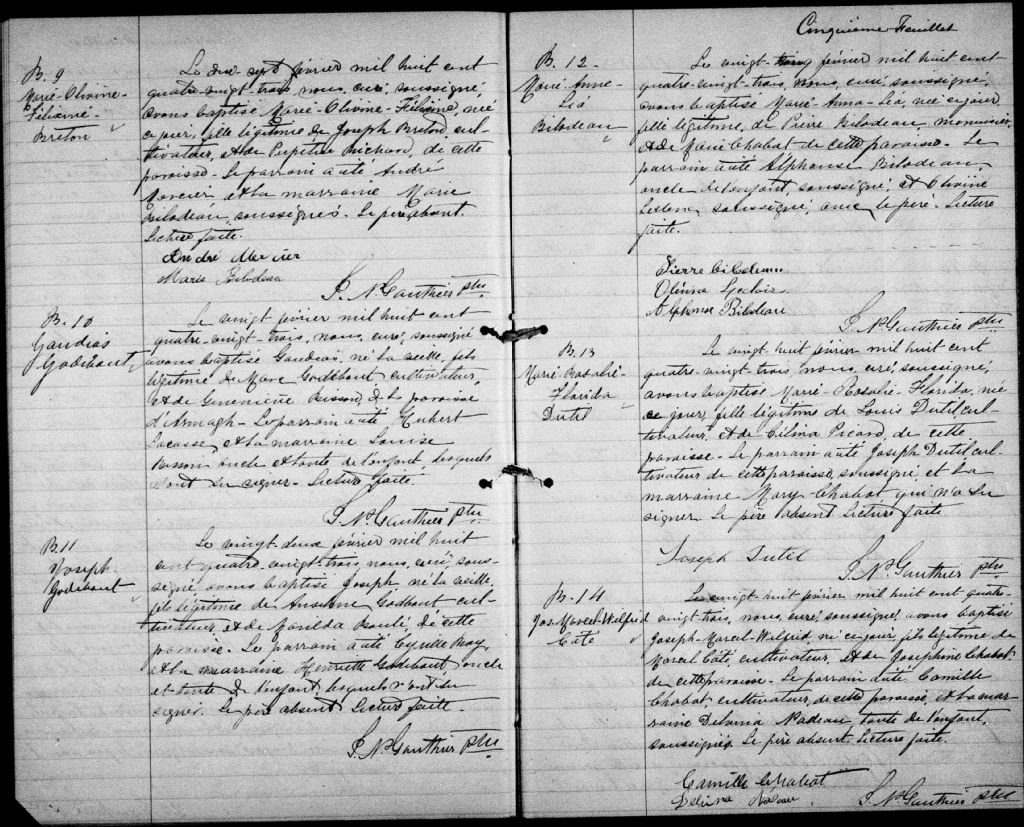 B. 9
Marie-Olivine-
Félixine-
Breton
Le dix-sept février mil huit cent
quatre-vingt-trois, nous, curé, soussigné,
avons baptisé Marie-Olivine-Félixine, née
ce jour, fille légitime de Joseph Breton, cul-
tivateur, et de Perpétue Richard, de cette
paroisse. Le parrain a été André
Mercier et la marraine Marie
Bilodeau, soussignés. Le père absent.
Lecture faite.
André Mercier
Marie Bilodeau
J. N. Gauthier ptre
B. 10
Gaudias
Godebout
Le vingt février mil huit cent
quatre-vingt-trois, nous, curé, soussigné
avons baptisé Gaudias, né la veille, fils
légitime de Marc Godebout cultivateur,
et de Geneviève Buisson, de la paroisse
d'Armagh. Le parrain a été Hubert
Lacasse, et la marraine Louise
oncle et tante de l'enfant, lesquels
n'ont su signer. Lecture faite.
J. N. Gauthier ptre
B. 11
Joseph
Godebout
Le vingt-deux février mil huit
cent quatre-vingt-trois, nous, curé, sous-
signé avons baptisé Joseph né la veille,
fils légitime de Anselme Godbout, cul-
tivateur, et de Marilda Boulé, de cette
paroisse. Le parrain a été Cyrille Roy
et la marraine Henriette Godebout, oncle
et tante de l'enfant, lesquels n'ont su
signer. Le père absent Lecture faite.
J. N. Gauthier ptre
Cinquième Feuillet
B. 12
Marie-Anne-
Léa
Bilodeau
Le vingt-cinq février mil huit cent-
quatre-vingt-trois, nous, curé, soussigné,
avons baptisé Marie-Anna-Léa, née ce jour,
fille légitime, de Pierre Bilodeau, menuisier,
et de Marie Chabot de cette paroisse. Le
parrain a été Alphonse Bilodeau,
oncle de l'enfant, soussigné, et Olivine
Leclerc, soussigné, avec le père. Lecture
faite.
Pierre Bilodeau
Olivine Leclair
Alphonse Bilodeau
J. N. Gauthier ptre
B. 13
Marie-Rosalie-
Florida
Dutil
Le vingt huit février mil huit cent
quatre-vingt-trois, nous, curé, soussigné,
avons baptisé Marie-Rosalie-Florida, née
ce jour, fille légitime de Louis Dutil cul-
tivateur, et de Célina Picard, de cette
paroisse. Le parrain a été Joseph Dutil cul-
tivateur de cette paroisse, soussigné, et la
marraine Mary Chabot qui n'a su
signer. Le père absent Lecture faite
Joseph Dutil
J. N. Gauthier ptre
B. 14
Jos. Marcel-Wilfrid
Côté
Le vingt huit février mil huit cent quatre-
vingt-trois, nous, curé, soussigné, avons baptisé
Joseph-Marcel-Wilfrid né ce jour, fils légitime de
Marcel Côté cultivateur, et de Josephine Chabot,
de cette paroisse. Le parrain a été Camille
Chabot, cultivateur, de cette paroisse, et la mar-
raine Delvina Nadeau, tante de l'enfant,
soussignés. Le père absent. Lecture faite.
Camille Chabot
Delvina Nadeau
J. N. Gauthier ptre